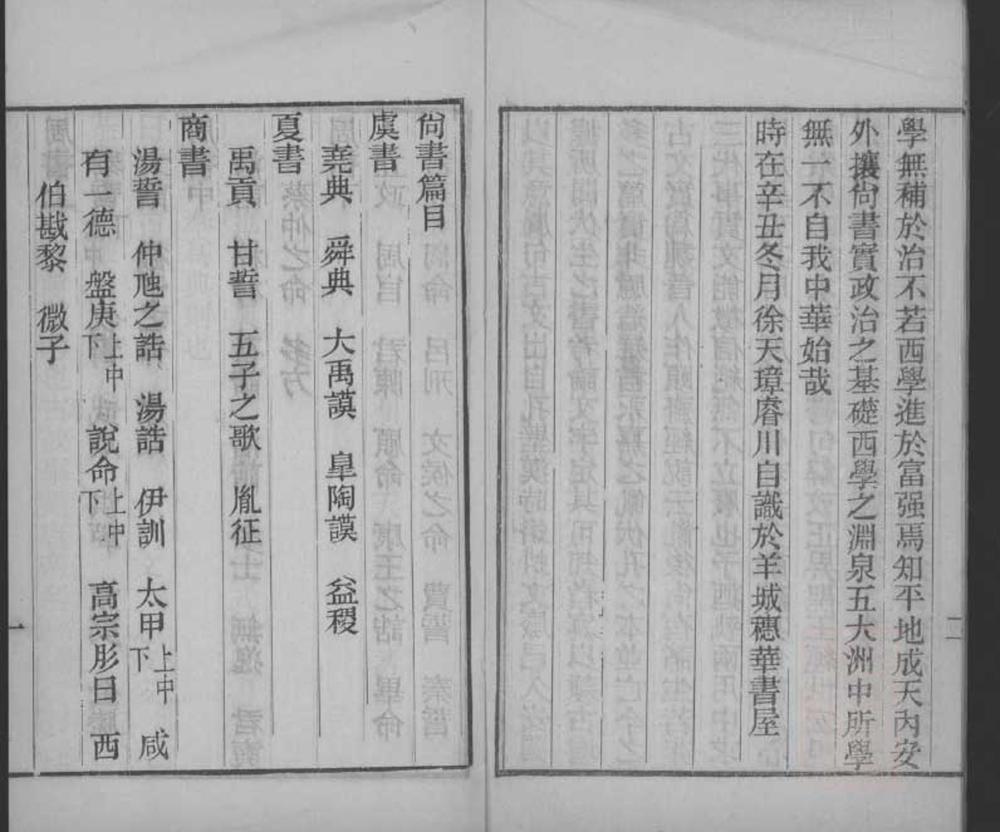 學無補於治不若西學進於富强焉知平地成天內安
外攘尙書實政治之基礎西學之淵泉五大洲中所學
無一不自我中華始哉
時在辛丑冬月徐天璋睿川自識於羊城穗華書屋
二
尙書篇目
虞書
堯典 舜典 大禹謨 臯陶謨 益稷
夏書
禹貢 甘誓 五子之歌 胤征
商書
湯誓 仲虺之誥 湯誥 伊訓 太甲上中下 咸
有一德 盤庚上中下 說命上中下 高宗肜日 西
伯戡黎 微子
一